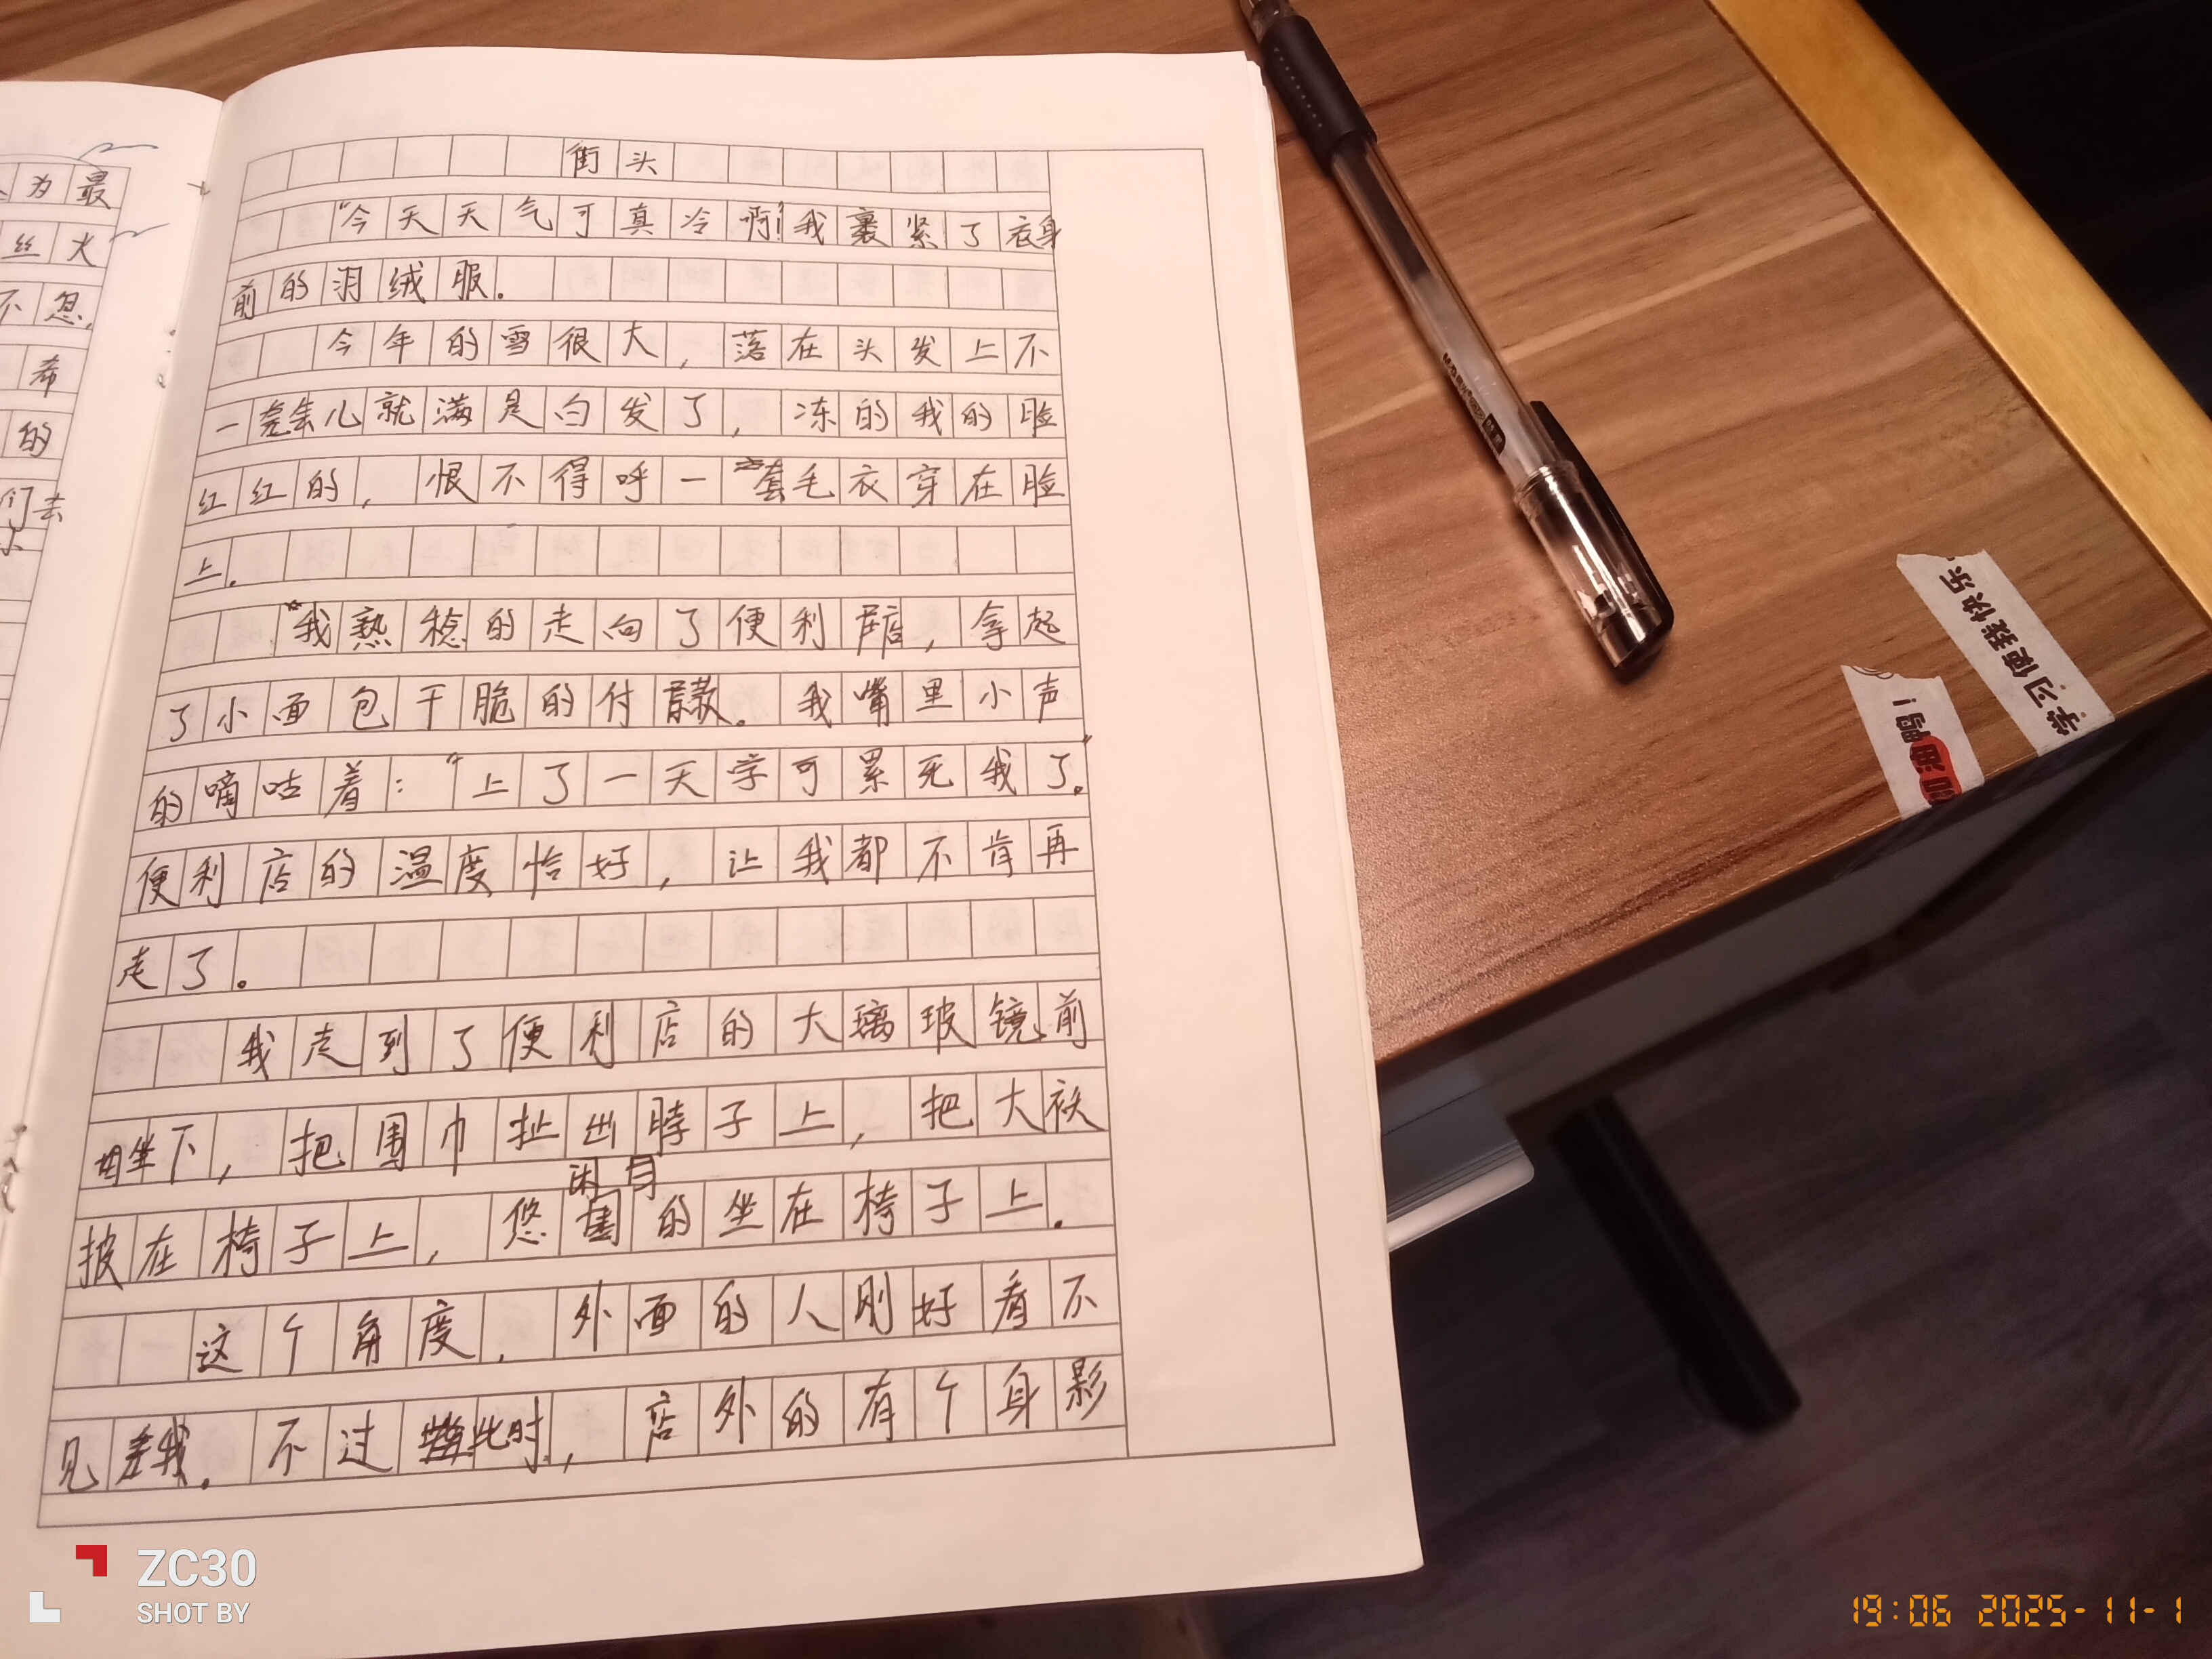 为最
丝火
不忽,
希
的
们去
街头
“今天天气可真冷啊!”我裹紧了衣身
前的羽绒服。
今年的雪很大,落在头发上不
一会儿就满是白发了,冻的我的脸
红红的,恨不得呼一套毛衣穿在脸
上。
“我熟稔的走向了便利店,拿起
了小面包干脆的付款。我嘴里小声
的嘀咕着:“上了一天学可累死我了。”
便利店的温度恰好,让我都不肯再
走了。
我走到了便利店的大璃玻镜前
坐下,把围巾扯出脖子上,把大袄
披在椅子上,悠闲的坐在椅子上。
这个角度,外面的人刚好看不
见我。不过此时,店外的有个身影
学习使我快乐
加油鸭!
ZC30
SHOT BY
19:06 2025-11-1